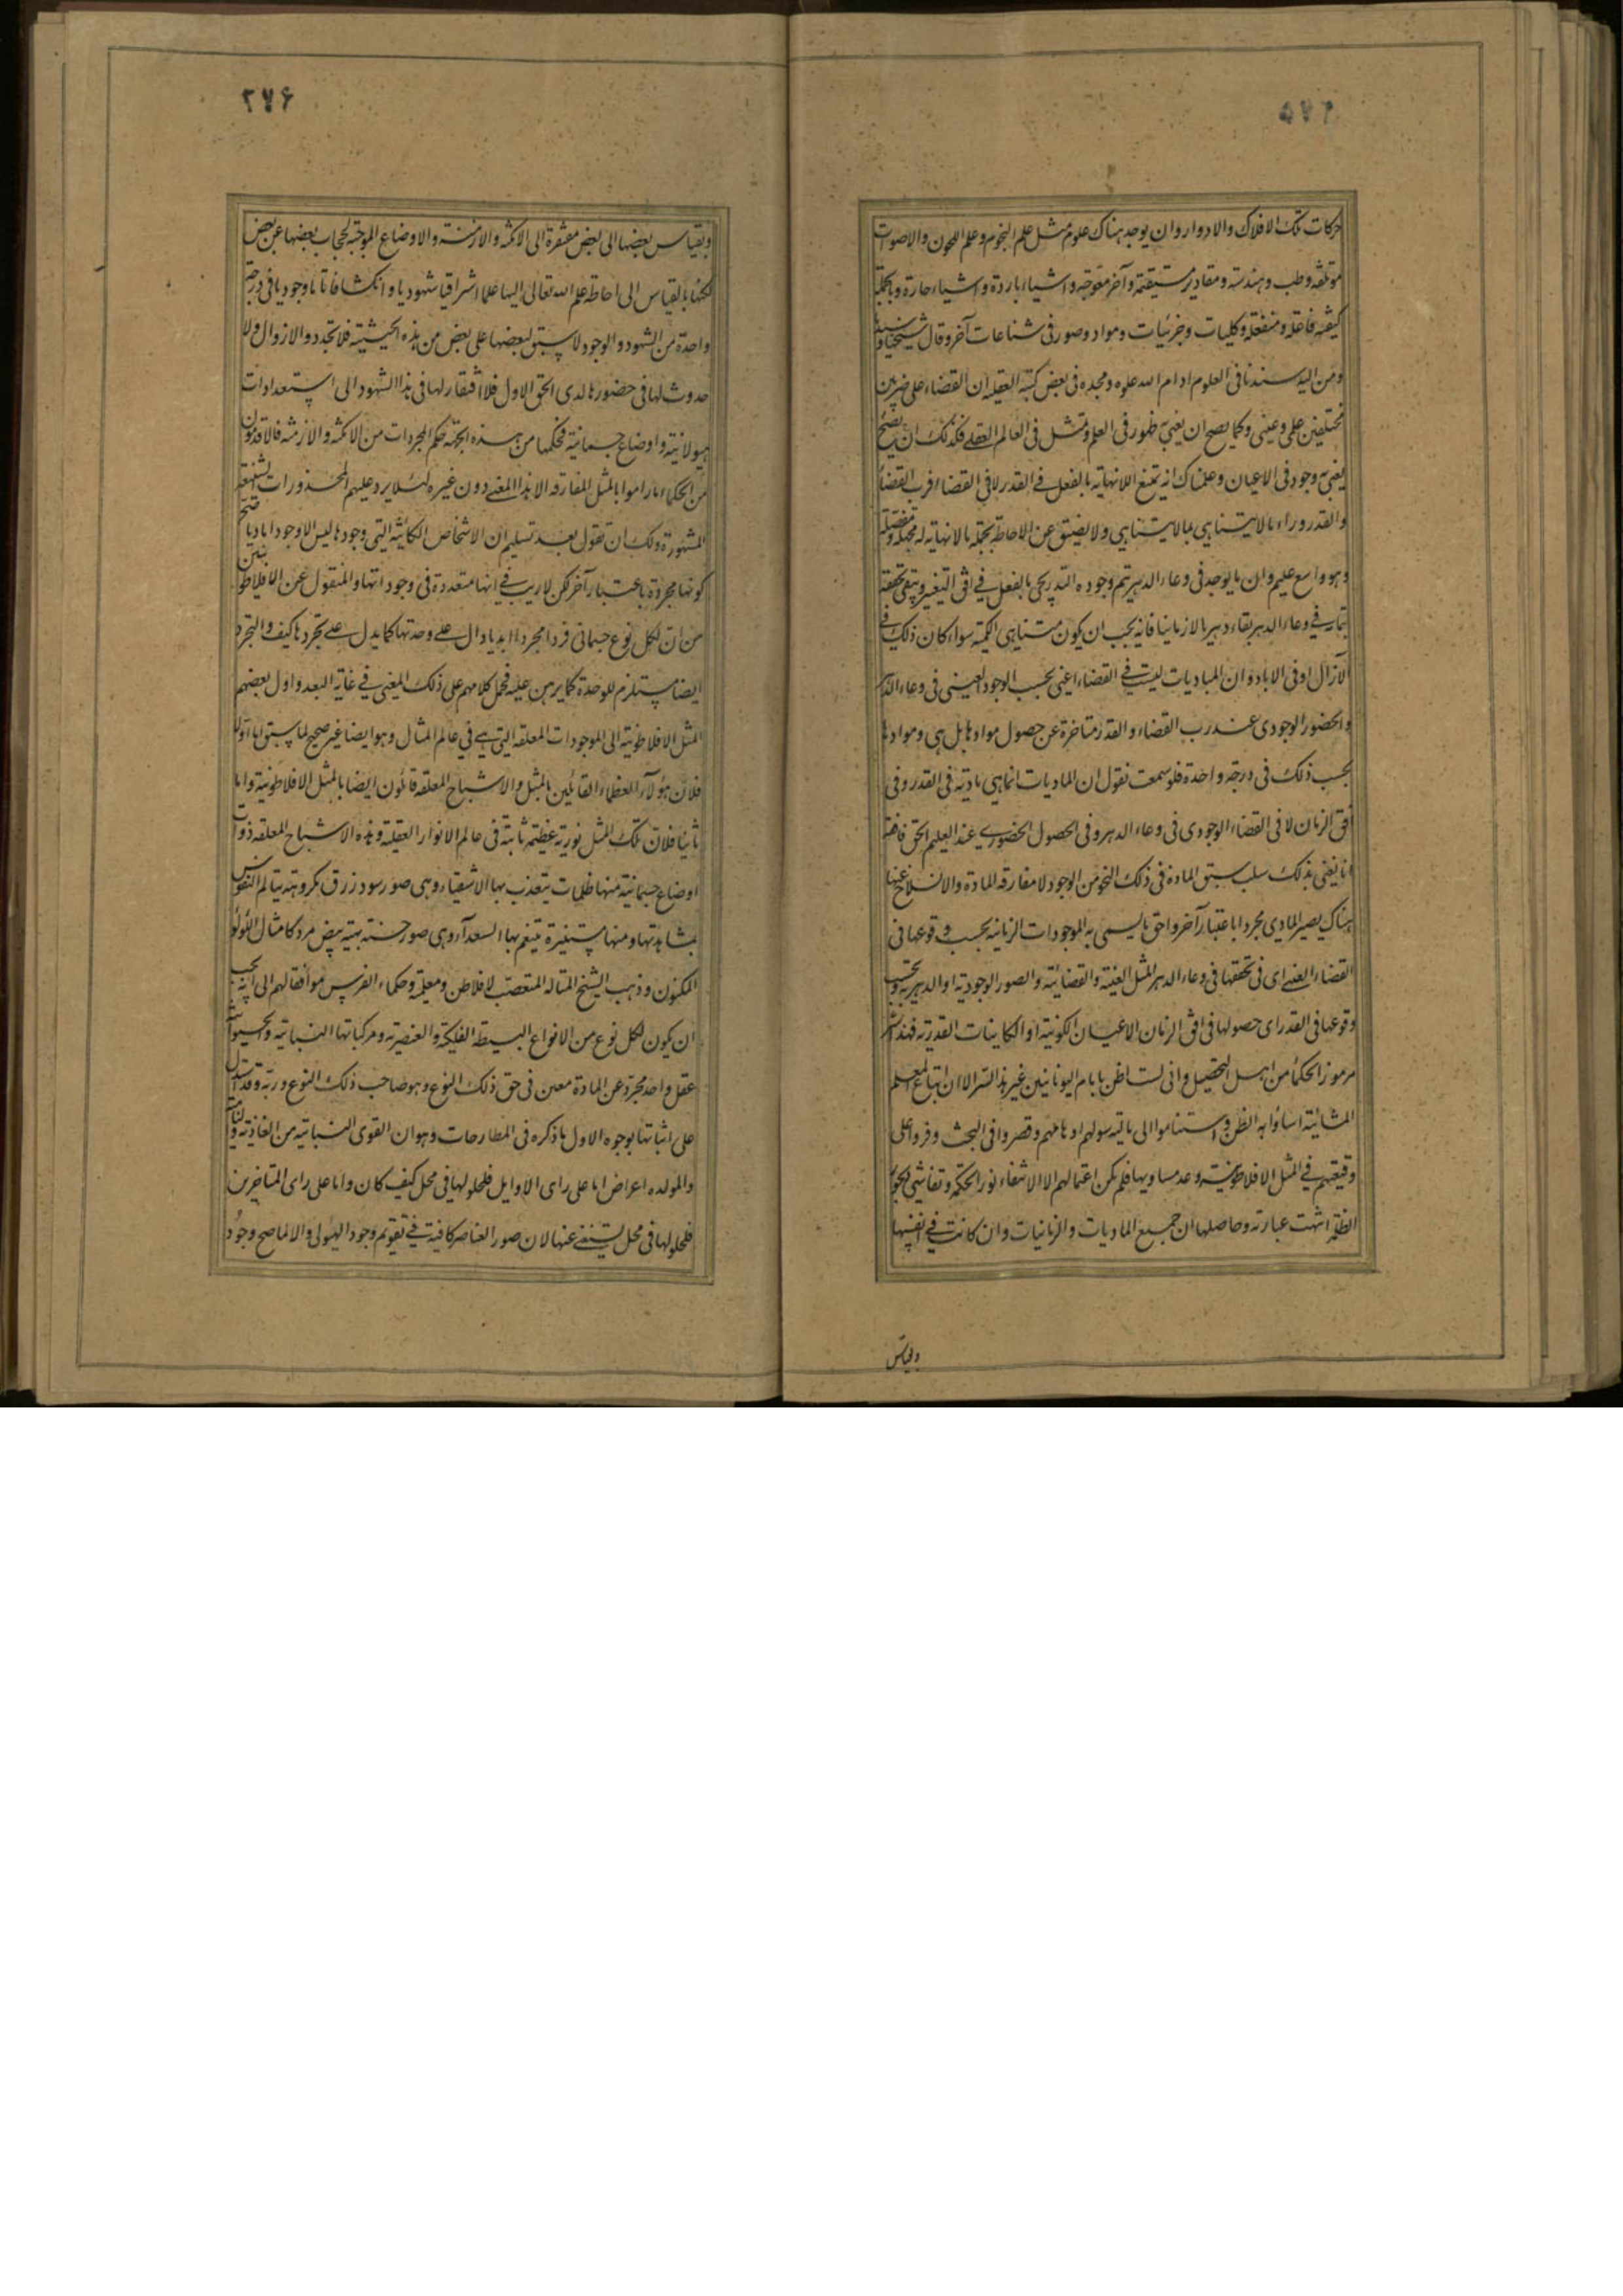 ٢٧٥
حركات تلك الافلاك والادوار وان يوجد هناك علوم مثل علم النجوم وعلم اللحون والاصوات
موتلفه وطب وهندسه ومقادير مستقيمه وآخر معوجه واشياء باردة واشياء حارة وبالجملة
كيفيه فاعله ومنفعله وكليات وجزئيات ومواد وصور فى شناعات آخر وقال شيخنا وسيدنا
ومن اليه سندنا فى العلوم ادام الله علوه ومجده فى بعض كتبه العقليه ان القضاء على ضربين
مختلفين علمى وعينى وكما يصح ان يعنى به ظهور فى العلم وتمثل فى العالم العقلى فكذلك ان يصح
يعنى به وجود فى الاعيان وعلمناك انه تمتنع اللانهاية بالفعل فى القدر لا فى القضاء فرب القضاء
والقدر وراء ما لا يتناهى بما لا يتناهى ولا يضيق عن الاحاطة بجمله ما لا نهاية له مجمله ومفصله
وهو واسع عليم وان ما يوجد فى وعاء الدهر يتم وجوده التدريجى بالفعل فى افق التغير ويبقى تحققه
بتمامه فى وعاء الدهر بقاء دهريا لا زمانيا فانه يجب ان يكون متناهى الكميه سواء كان ذلك فى
الآزال او فى الاباد وان الماديات ليست فى القضاء اعنى بحسب الوجود العينى فى وعاء الدهر
والحضور الوجودى عند رب القضاء والقدر متاخرة عن حصول موادها بل هى وموادها
بحسب ذلك فى درجه واحدة فلو سمعت نقول ان الماديات انما هى ماديه فى القدر وفى
افق الزمان لا فى القضاء الوجودى فى وعاء الدهر وفى الحصول الحضورى عند العليم الحق فافقه
انا نعنى بذلك سلب سبق المادة فى ذلك النحو من الوجود لا مفارقه المادة والانسلاخ عنها
هناك يصير المادى مجردا باعتبار آخر واحق ما يسمى به الموجودات الزمانيه بحسب وقوعها فى
القضاء العينى اى فى تحققها فى وعاء الدهر المثل العينيه والقضائيه والصور الوجوديه او الدهريه وبحسب
وقوعها فى القدر اى حصولها فى افق الزمان الاعيان الكونية او الكاينات القدريه فهذا سر
مرموز الحكماء من اهل التحصيل وانى لست اظن بامام اليونانيين غير هذا السر الا ان اتباع معلم
المشائيه اساؤا به الظن واستناموا الى ما تيه سولهم اوهامهم وقصروا فى البحث وفروا على
وقيعتهم فى المثل الافلاطونية وعد مساويها فلم يكن اعتمالهم الا لاطفاء نور الحكمة وتفاشى ديجور
الظلمة انتهت عبارته وحاصلها ان جميع الماديات والزمانيات وان كانت فى انفسها
وبقياس
٢٧۶
وبقياس بعضها الى بعض مفتقرة الى الامكنه والازمنه والاوضاع الموجبه لحجاب بعضها عن بعض
لكنها بالقياس الى احاطه علم الله تعالى اليها علما اشراقيا شهوديا وانكشافا تاما وجوديا فى درجة
واحدة من الشهود والوجود لا سبق لبعضها على بعض من هذه الحيثيته فلا تجدد ولا زوال ولا
حدوث لها فى حضورها لدى الحق الاول فلا افتقار لها فى هذا الشهود الى استعدادات
هيولانية واوضاع جسمانية فحكمها من هذه الجهة حكم المجردات من الامكنه والازمنه فالاقدمون
من الحكماء ما راموا بالمثل المفارقه الا هذا المعنى دون غيره لئلا يرد عليهم المحذورات الشنيعه
المشهورة ولك ان تقول بعد تسليم ان الاشخاص الكائنه التى وجودها ليس الا وجودا ماديا صح
كونها مجردة باعتبار آخر لكن لا ريب فى انها متعددة فى وجوداتها والمنقول عن الافلاطونيين
من ان لكل نوع جسمانى فردا مجردا ابديا دال على وحدتها كما يدل على تجردها كيف والتجرد
ايضا مستلزم للوحدة كما برهن عليه فحمل كلامهم على ذلك المعنى فى غاية البعد واول بعضهم
المثل الافلاطونية الى الموجودات المعلقه التى هى فى عالم المثال وهو ايضا غير صحيح لما سبق اما اولا
فلان هؤلآء العظماء القائلين بالمثل والاشباح المعلقه قائلون ايضا بالمثل الافلاطونية واما
ثانيا فلان تلك المثل نورية عظيمه ثابتة فى عالم الانوار العقليه وهذه الاشباح المعلقه ذوات
اوضاع جسمانية منها ظلمات يتعذب بها الاشقياء وهى صور سود زرق مكروهة يتالم النفوس
بمشاهدتها ومنها مستنيرة يتنعم بها السعدآء وهى صور حسنه بهيه بيض مرد كامثال اللؤلؤ
المكنون وذهب الشيخ المتاله المتعصب لافلاطن ومعلمه وحكماء الفرس موافقا لهم الى انه يجب
ان يكون لكل نوع من الانواع البسيطه الفلكيه والعنصريه ومركباتها النباتيه والحيوانيه
عقل واحد مجرد عن المادة معين فى حق ذلك النوع وهو صاحب ذلك النوع وربه وقد استدل
على اثباتها بوجوه الاول ما ذكره فى المطارحات وهو ان القوى النباتيه من الغاذيه والناميه
والمولده اعراض اما على راى الاوايل فلحلولها فى محل كيف كان واما على راى المتاخرين
فلحلولها فى محل يستغنى عنها لان صور العناصر كافية فى تقويم وجود الهيولى والا لما صح وجود